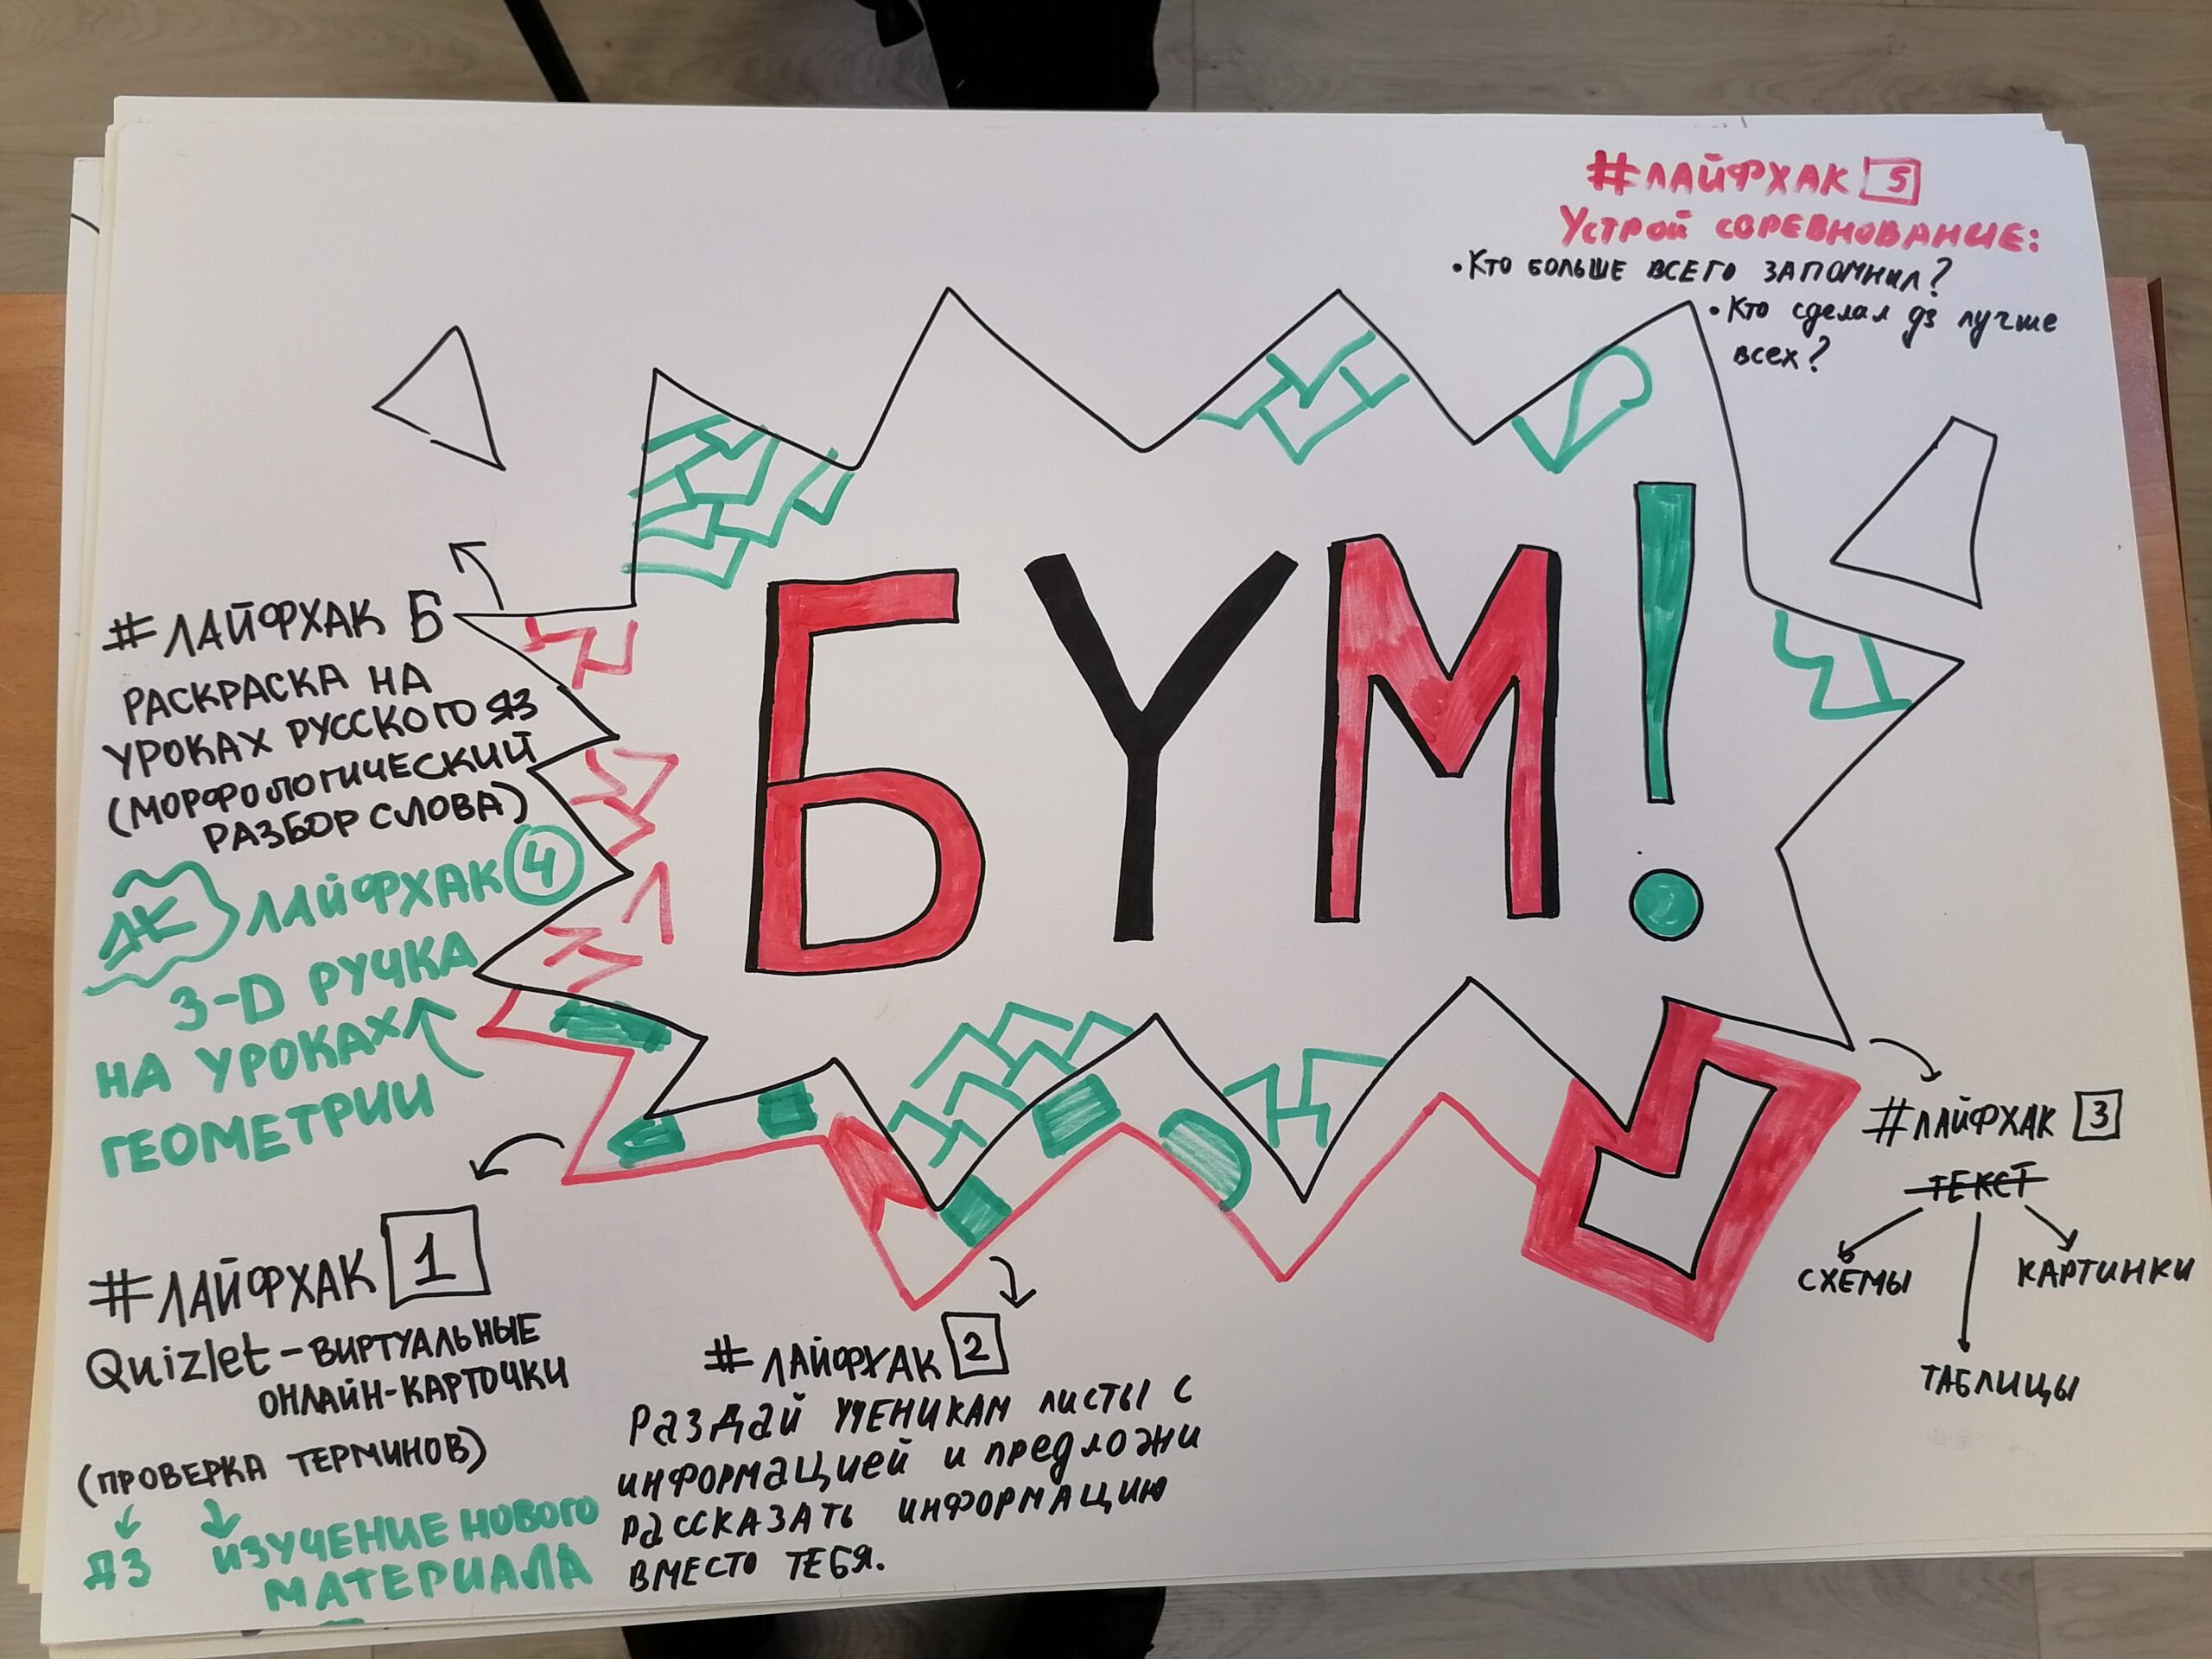 #ЛАЙФХАК 5
Устрой соревнование:
• Кто больше всего запомнил?
• Кто сделал дз лучше
всех?
БУМ!
#ЛАЙФХАК Б
РАСКРАСКА НА
УРОКАХ РУССКОГО ЯЗ
(МОРФОЛОГИЧЕСКИЙ
РАЗБОР СЛОВА)
ЛАЙФХАК 4
3-D РУЧКА
НА УРОКАХ
ГЕОМЕТРИИ
#ЛАЙФХАК 1
Quizlet – ВИРТУАЛЬНЫЕ
ОНЛАЙН-КАРТОЧКИ
(ПРОВЕРКА ТЕРМИНОВ)
ДЗ ИЗУЧЕНИЕ НОВОГО
МАТЕРИАЛА
#ЛАЙФХАК 2
Раздай ученикам листы с
информацией и предложи
рассказать информацию
вместо тебя.
#ЛАЙФХАК 3
ТЕКСТ
СХЕМЫ КАРТИНКИ
ТАБЛИЦЫ